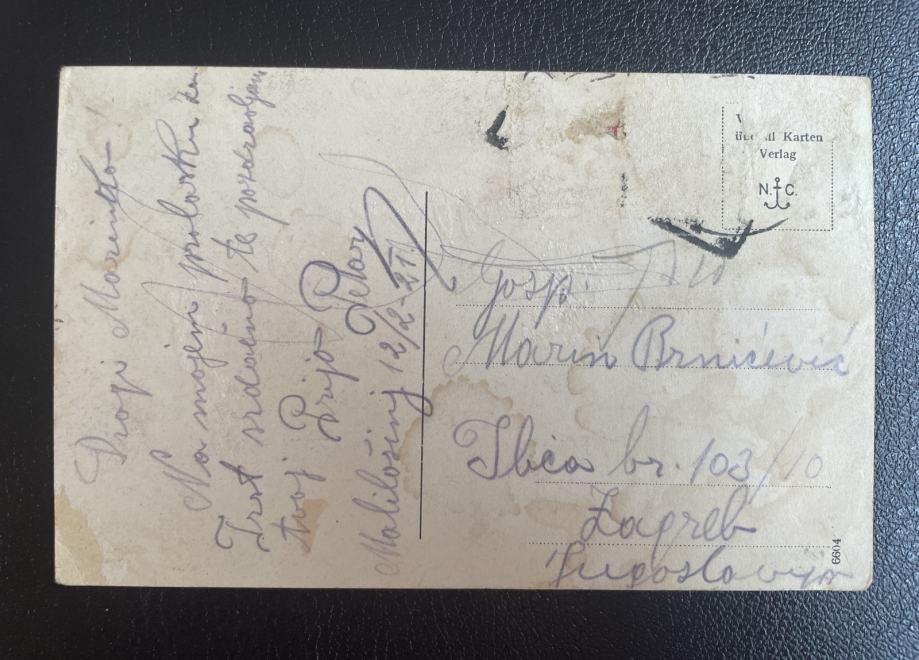 Dragi Marinko!
Na mojem prolasku za
Trst srdačno te pozdravljam
tvoj Prijo Petar
Malilošinj 12/2-
überall Karten
Verlag
N. C.
Gosp.
Marin Brnićević
Ilica br. 103/10
Zagreb
Jugoslavija
6604